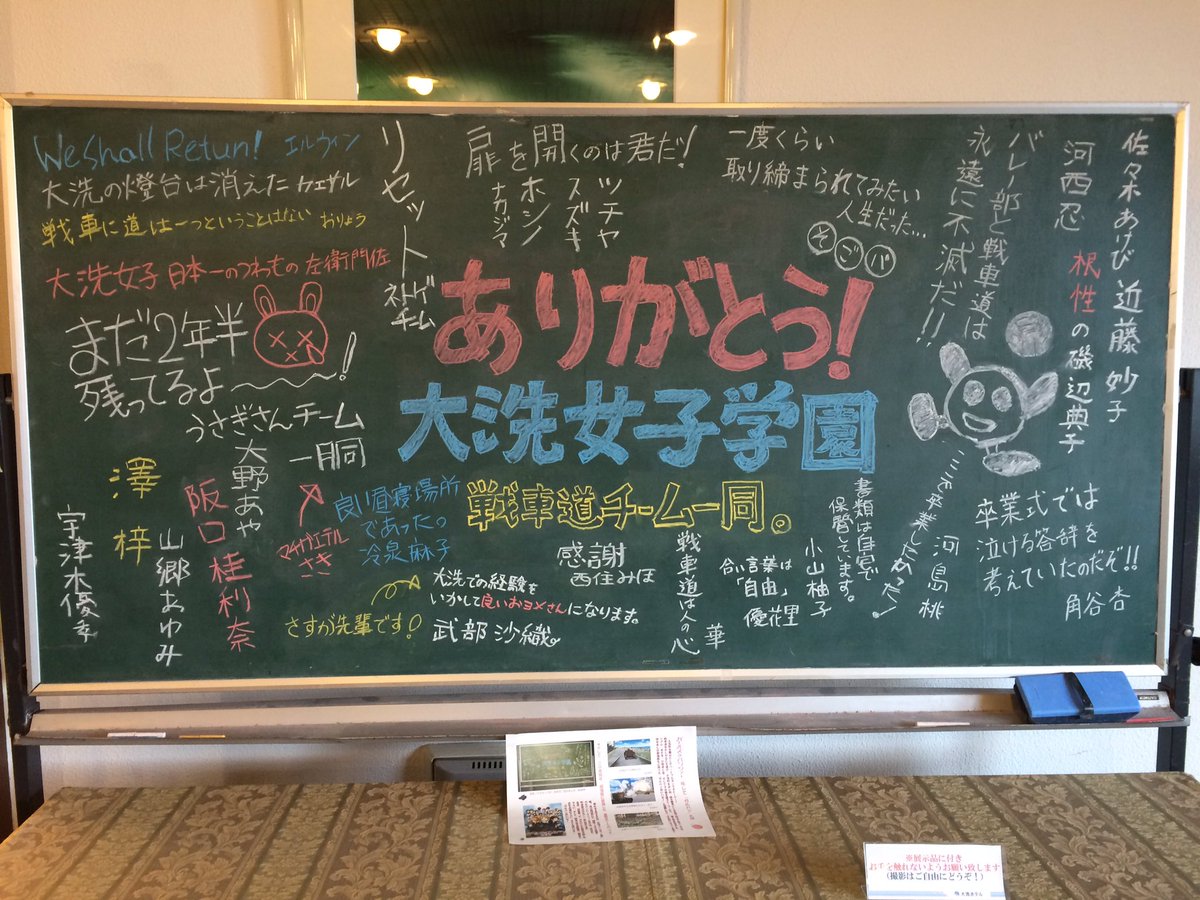 We Shall Retun! エルウィン
大洗の燈台は消えた カエサル
戦車に道は一つということはない おりょう
大洗女子 日本一のつわもの 左衛門佐
まだ2年半
残ってるよ〜〜!
うさぎさんチーム
一同
大野あや
マチガエテル
さき
澤 梓
阪口 桂利奈
山郷あゆみ
宇津木優季
リセット
ネトゲ
チーム
扉を開くのは君だ!
ツチヤ
スズキ
ホシノ
ナカジマ
一度くらい
取り締まられてみたい
人生だった…
そ ご パ
バレー部と戦車道は
永遠に不滅だ!!
佐々木あけび
近藤妙子
河西忍
根性の磯辺典子
ありがとう!
大洗女子学園
戦車道チーム一同。
良い昼寝場所
であったの
冷泉麻子
さすが先輩です!
大洗での経験を
いかして良いおヨメさんになります。
武部沙織。
感謝
西住みほ
戦車道は人の心
華
合い言葉は
「自由」
優花里
書類は自室で
保管しています。
小山柚子
ここで卒業したかった!
河島桃
卒業式では
泣ける答辞を
考えていたのだぞ!!
角谷杏
※展示品に付き
お手を触れないようお願い致します
(撮影はご自由にどうぞ!)